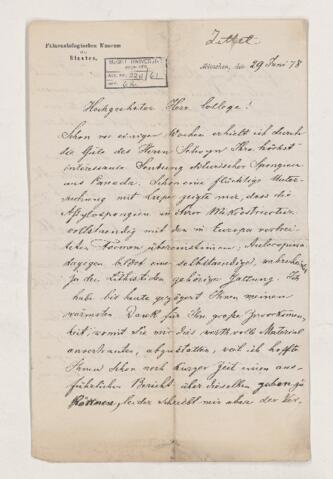 Zittel.
Palaeontologisches Museum
des
Staates.
München, den 29 Juni 78
Hochgeehrter Herr College!
Schon vor einigen Wochen erhielt ich durch
die Güte des Herrn Ihre höchst
interessante Sendung silurischer Spongien
aus Canada. Schon eine flüchtige Unter-
suchung mit Loupe zeigte mir, dass die
Astylospongien in ihrer Mikrostructur
vollstaendig mit den in Europa verbrei-
teten Formen übereinstimmen, Aulocopina
dagegen bildet eine selbstaendige,
zu den Lithistiden gehörige Gattung. Ich
habe bis heute gezögert Ihnen meinen
wärmsten Dank für Ihre große
keit, womit Sie mir das werthvolle Material
anvertrauten, abzustatten, weil ich hoffte
Ihnen schon nach kurzer Zeit einen aus-
führlichen Bericht über dieselben geben zu
können, leider schreibt mir aber der Ver-